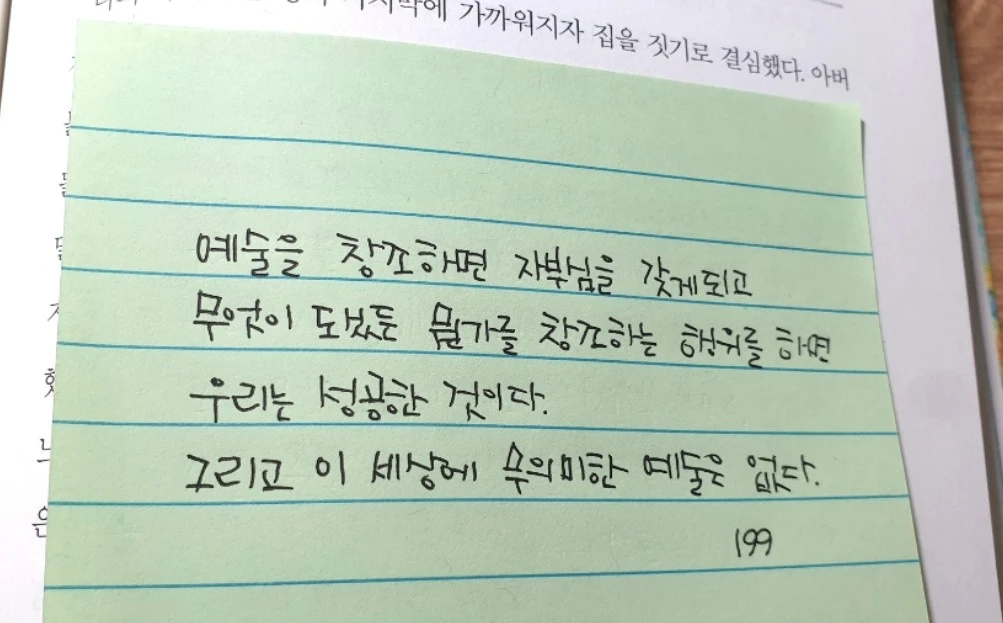 가까워지자 집을 짓기로 결심했다. 아버
예술을 창조하면 자부심을 갖게되고
무엇이 되었든 뭔가를 창조하는 행위를 하면
우리는 성공한 것이다.
그리고 이 세상에 무의미한 예술은 없다.
199